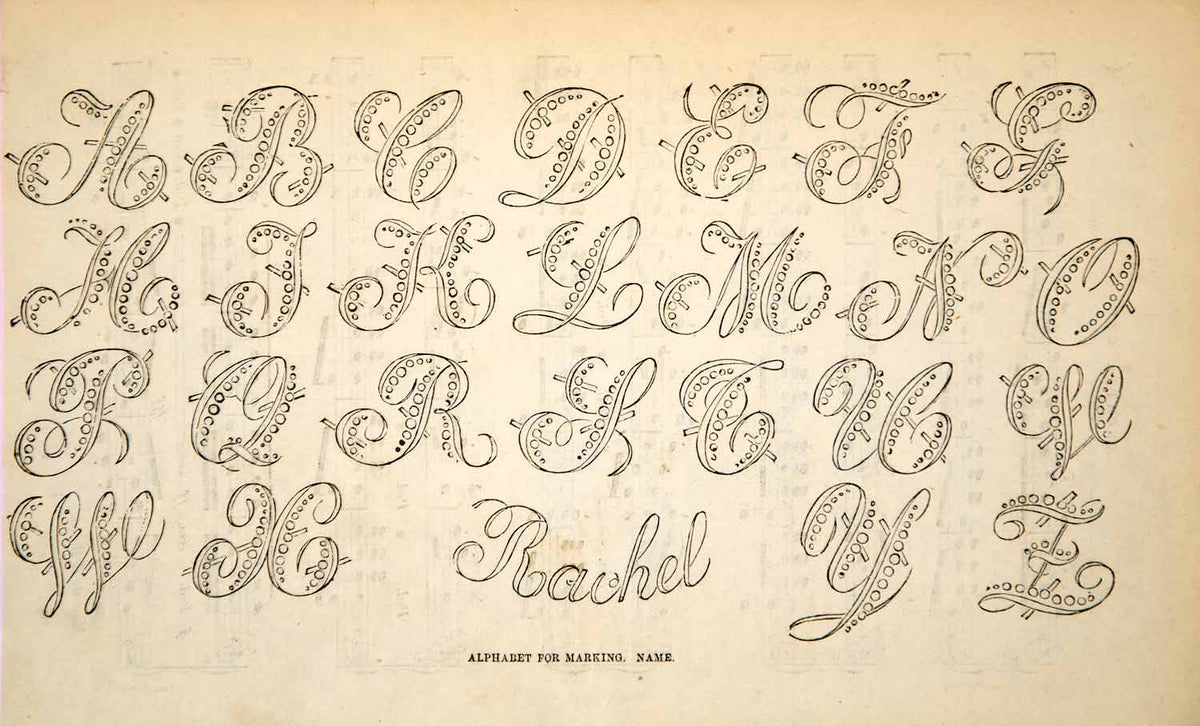 A B C D E F G
H I K L M N O
P Q R S T U V
W X Rachel Y Z
ALPHABET FOR MARKING. NAME.